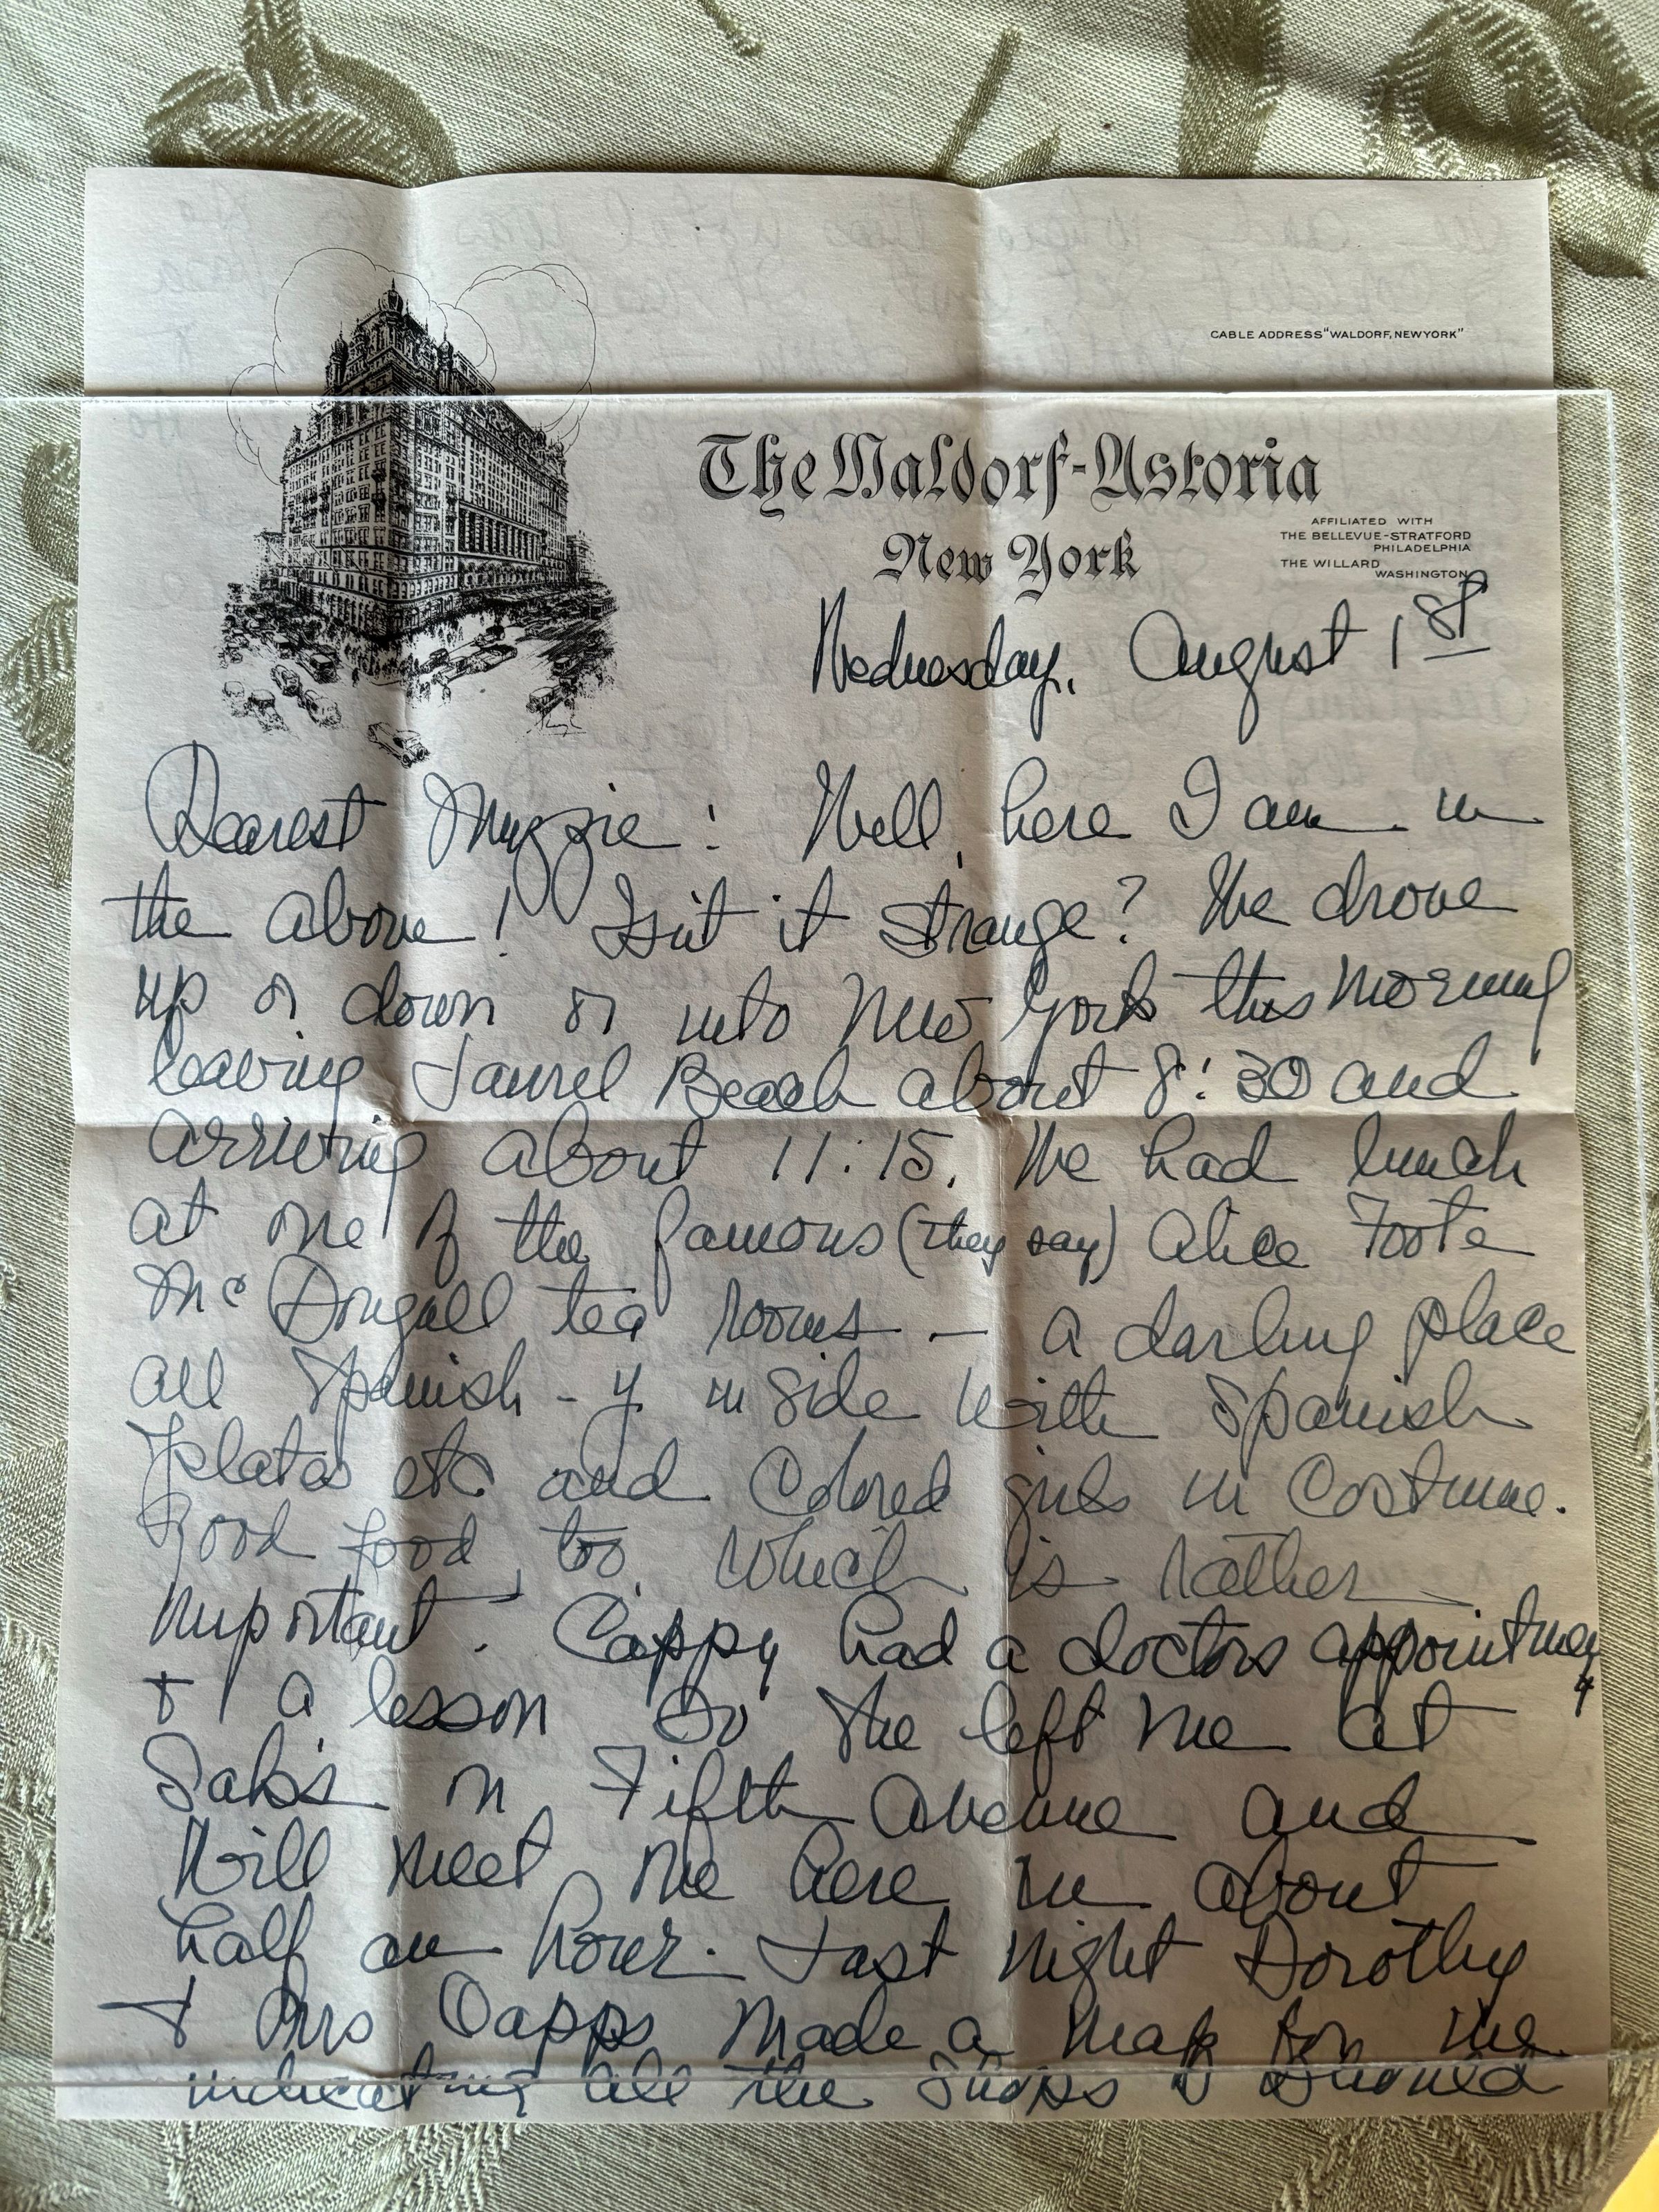 CABLE ADDRESS "WALDORF, NEWYORK"
The Waldorf-Astoria
New York
AFFILIATED WITH
THE BELLEVUE-STRATFORD
PHILADELPHIA
THE WILLARD
WASHINGTON
Wednesday, August 1st
Dearest Muzzie: Well, here I am in
the above! Isn't it strange? We drove
up or down or into New York this morning
leaving Laurel Beach about 8:30 and
arriving about 11:15. We had lunch
at one of the famous (they say) Alice Foote
McDougall tea rooms — a darling place
all Spanish-y inside with Spanish
plates etc and colored girls in costume.
Good food, too, which is rather
important. Cappy had a doctors appointment
+ a lesson so she left me at
Saks on Fifth Avenue and
will meet me here in about
half an hour. Last night Dorothy
+ Mrs Capps made a map for me
indicating all the shops I should